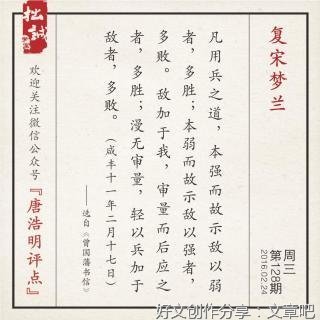 复宋梦兰
周三
第128期
2016.02.24
凡用兵之道，本强而故示敌以弱
者，多胜；本弱而故示敌以强者，
多败。敌加于我，审量而后应之
者，多胜；漫无审量，轻以兵加于
敌者，多败。（咸丰十一年二月十七日）
——选自《曾国藩书信》
拙誠
欢迎关注微信公众号『唐浩明评点』
好文创作分享：文章吧